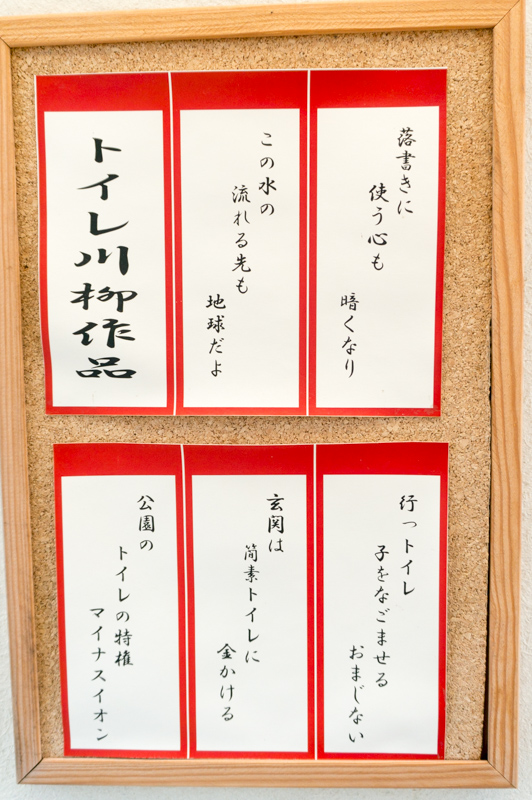 落書きに
使う心も
暗くなり
この水の
流れる先も
地球だよ
トイレ川柳作品
行っトイレ
子をなごませる
おまじない
玄関は
簡素トイレに
金かける
公園の
トイレの特権
マイナスイオン